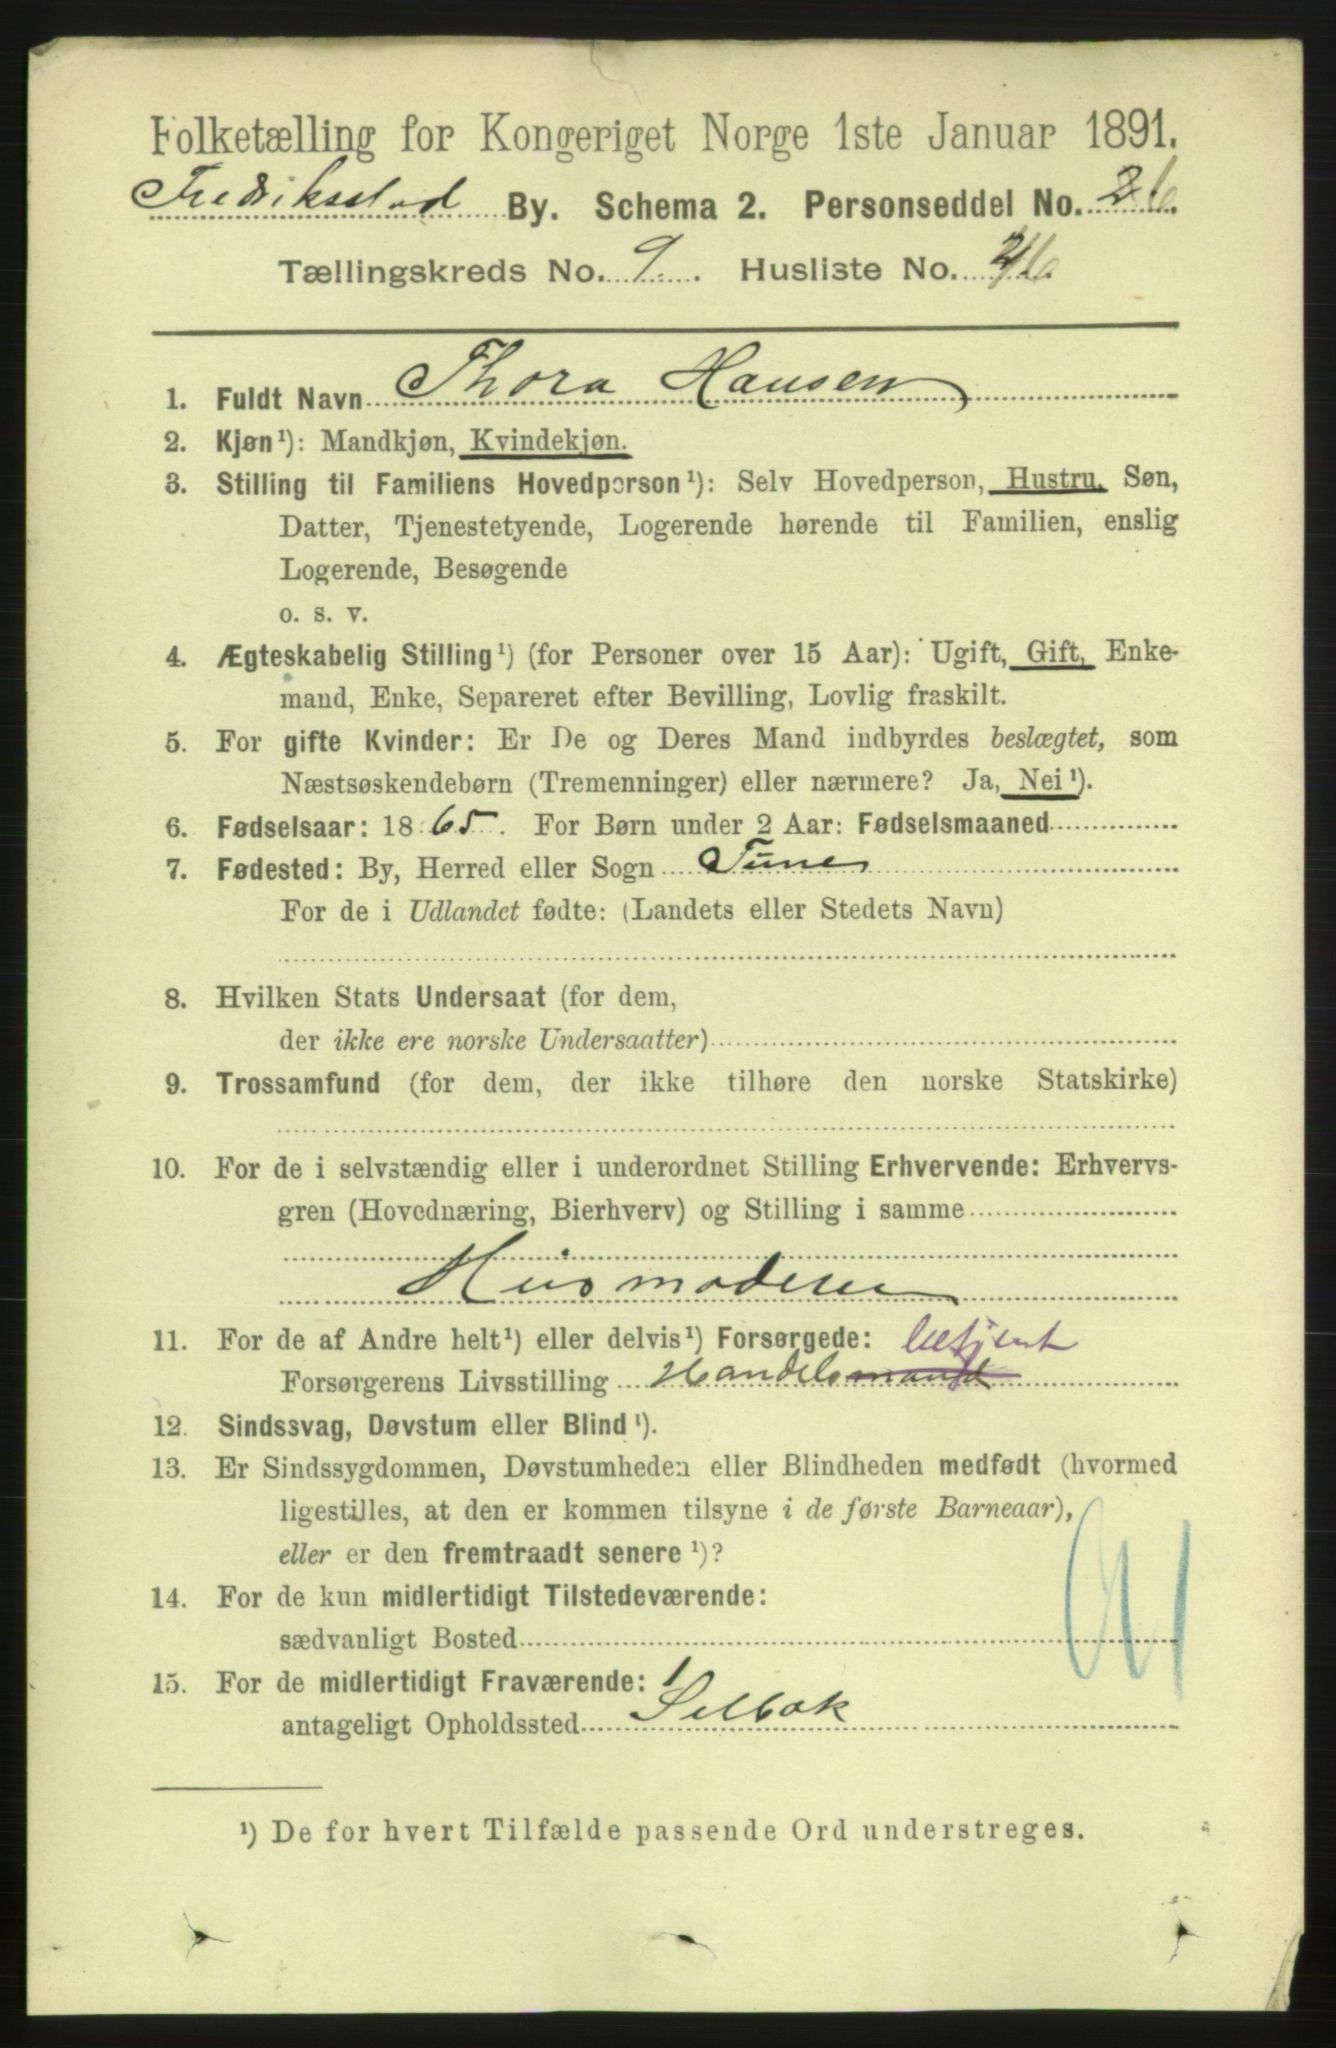 Folketælling for Kongeriget Norge 1ste Januar 1891.
Fredriksstad By. Schema 2. Personseddel No. 26.
Tællingskreds No. 9. Husliste No.
1. Fuldt Navn Thora Hansen
2. Kjøn¹): Mandkjøn, Kvindekjøn.
3. Stilling til Familiens Hovedperson¹): Selv Hovedperson, Hustru, Søn,
Datter, Tjenestetyende, Logerende hørende til Familien, enslig
Logerende, Besøgende
o. s. v.
4. Ægteskabelig Stilling¹) (for Personer over 15 Aar): Ugift, Gift, Enke-
mand, Enke, Separeret efter Bevilling, Lovlig fraskilt.
5. For gifte Kvinder: Er De og Deres Mand indbyrdes beslægtet, som
Næstsøskendebørn (Tremenninger) eller nærmere? Ja, Nei¹).
6. Fødselsaar: 1865. For Børn under 2 Aar: Fødselsmaaned
7. Fødested: By, Herred eller Sogn Tune
For de i Udlandet fødte: (Landets eller Stedets Navn)
8. Hvilken Stats Undersaat (for dem,
der ikke ere norske Undersaatter)
9. Trossamfund (for dem, der ikke tilhøre den norske Statskirke)
10. For de i selvstændig eller i underordnet Stilling Erhvervende: Erhvervs-
gren (Hovednæring, Bierhverv) og Stilling i samme
Husmoderen
11. For de af Andre helt¹) eller delvis¹) Forsørgede: betjent
Forsørgerens Livsstilling Handelsmand
12. Sindssvag, Døvstum eller Blind¹).
13. Er Sindssygdommen, Døvstumheden eller Blindheden medfødt (hvormed
ligestilles, at den er kommen tilsyne i de første Barneaar),
eller er den fremtraadt senere¹)?
14. For de kun midlertidigt Tilstedeværende:
sædvanligt Bosted
15. For de midlertidigt Fraværende:
antageligt Opholdssted Selbak
¹) De for hvert Tilfælde passende Ord understreges.